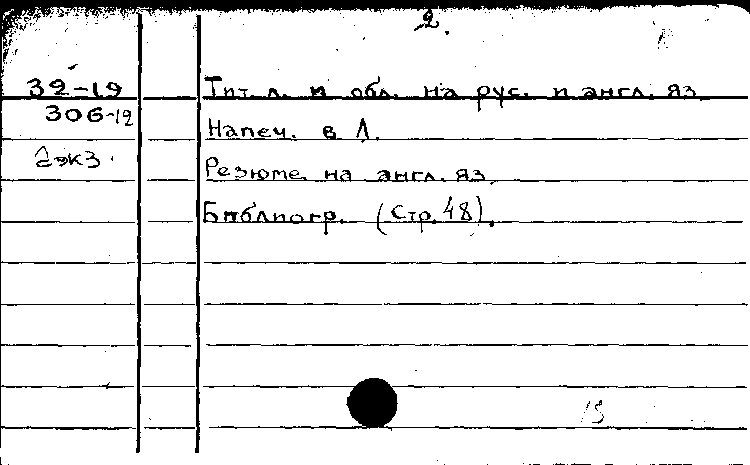 2.
32-19
306-12
2 экз.
Тит. л. и обл. на рус. и англ. яз.
Напеч. в Л.
Резюме на англ. яз.
Библиогр. (Стр. 48).